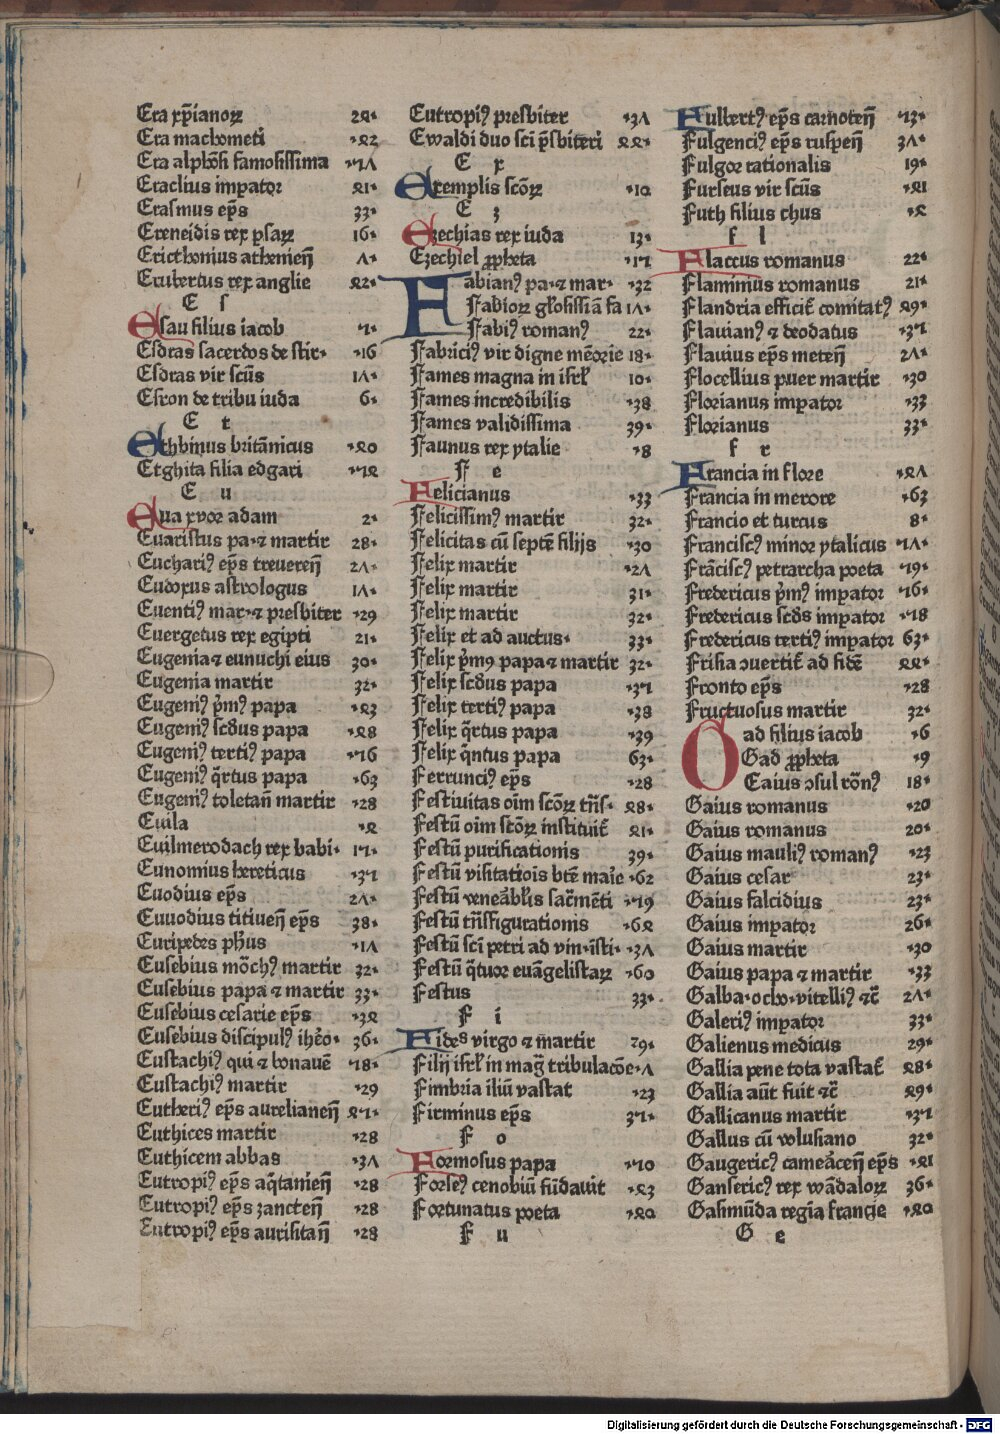 Era xp̄ianoꝝ 24·
Era machometi ·42
Era alphōsi famosissima ·57
Eraclius imꝑator 41·
Erasmus ep̄s 33·
Ereneidis rex ꝑsaꝝ 16·
Ericthonius atheniēn 7·
Erubertus rex anglie 42·
E s
Esau filius iacob 5·
Esdras sacerdos de stir· ·16
Esdras vir scūs 17·
Esron de tribu iuda 6·
E t
Ethbinus britānicus ·40
Etghita filia edgari ·54
E u
Eua xvor adam 2·
Euaristus pa·⁊ martir 28·
Euchariꝰ ep̄s treuereñ 27·
Eudoxus astrologus 17·
Euentiꝰ mar·⁊ presbiter ·29
Euergetus rex egipti 21·
Eugenia⁊ eunuchi eius 30·
Eugenia martir 32·
Eugeniꝰ p̄mꝰ papa ·43
Eugeniꝰ scdus papa ·48
Eugeniꝰ tertiꝰ papa ·56
Eugeniꝰ q̄rtus papa ·63
Eugeniꝰ toletañ martir ·28
Euila ·4
Euilmerodach rex babi· 15·
Eunomius hereticus ·35
Euodius ep̄s 27·
Euuodius titiueñ ep̄s 38·
Euripedes ph̄us ·17
Eusebius mōchꝰ martir 32·
Eusebius papa ⁊ martir 33·
Eusebius cesarie ep̄s ·34
Eusebius discipulꝰ ihēo· 36·
Eustachiꝰ qui ⁊ bonauē ·58·
Eustachiꝰ martir ·29
Eutheriꝰ ep̄s aurelianeñ 45·
Euthices martir ·28
Euthicem abbas ·37
Eutropiꝰ ep̄s aq̄tanieñ ·28
Eutropiꝰ ep̄s zancteñ ·28
Eutropiꝰ ep̄s aurisitañ ·28
Eutropiꝰ presbiter ·37
Ewaldi duo sc̄i p̄sbiteri 44·
E x
Exemplis scōꝝ ·10
E z
Ezechias rex iuda 13·
Ezechiel ꝓpheta ·15
Fabianꝰ pa·⁊ mar· ·32
Fabioꝝ gl̄osissīa fa 17·
Fabiꝰ romanꝰ 22·
Fabriciꝰ vir digne mēorie 18·
Fames magna in isrl̄ 10·
Fames incredibilis ·38
Fames validissima 39·
Faunus rex ytalie ·8
F e
Felicianus ·33
Felicissimꝰ martir 32·
Felicitas cū septē filijs ·30
Felix martir ·27
Felix martir 31·
Felix martir 32·
Felix et ad auctus· 33·
Felix p̄mꝰ papa⁊ martir 32·
Felix scdus papa ·35
Felix tertiꝰ papa ·38
Felix q̄rtus papa ·39
Felix q̄ntus papa 63·
Ferrunciꝰ ep̄s ·28
Festiuitas oīm scōꝝ trn̄s· 48·
Festū oīm scōꝝ instituit̄ 41·
Festū purificationis 39·
Festū visitatiois btē maīe ·62
Festū venēabl̄is sac̄mēti ·59
Festū trn̄sfigurationis ·64
Festū sc̄i petri ad vin·īsti· ·37
Festū q̄tuor euāgelistaꝝ ·60
Festus 33·
F i
Fides virgo ⁊ martir 29·
Filij isrl̄ in mag̃ tribulacōe·7
Fimbria iliū vastat ·23
Firminus ep̄s 35·
F o
Formosus papa ·50
Forseꝰ cenobiū fūdauit ·43
Fortunatus poeta ·40
F u
Fulbertꝰ ep̄s carnoteñ ·53·
Fulgenciꝰ ep̄s ruspeñ 37·
Fulgor rationalis 19·
Furseus vir scūs ·41
Futh filius chus ·4
f l
Flaccus romanus 22·
Flaminius romanus 21·
Flandria efficit̄ comitatꝰ 49·
Flauianꝰ ⁊ deodatus ·35
Flauius ep̄s meteñ 27·
Flocellius puer martir ·30
Florianus imꝑator ·33
Florianus 33·
f r
Francia in flore ·47
Francia in merore ·63
Francio et turcus 8·
Franciscꝰ minor ytalicus ·57·
Frāciscꝰ petrarcha poeta ·59·
Fredericus p̄mꝰ imꝑator ·56·
Fredericus scdꝰ imꝑator ·58
Fredericus tertiꝰ imꝑator 63·
Frisia ↄuertit̄ ad fidē 44·
Fronto ep̄s ·28
Fructuosus martir 32·
Gad filius iacob ·6
Gad ꝓpheta ·9
Caius ↄsul rōnꝰ 18·
Gaius romanus ·20
Gaius romanus 20·
Gaius mauliꝰ romanꝰ ·23
Gaius cesar 23·
Gaius falcidius 23·
Gaius imꝑator 26·
Gaius martir ·30
Gaius papa ⁊ martir ·33
Galba·octo·vitelliꝰ ⁊c̄ 27·
Galeriꝰ imꝑator 33·
Galienus medicus 29·
Gallia pene tota vastat̄ 48·
Gallia aūt fuit ⁊c̄ 49·
Gallicanus martir ·35
Gallus cū volusiano 32·
Gaugericꝰ camēaceñ ep̄s ·41
Gansericꝰ rex wādaloꝝ 36·
Gasimūda regīa francie ·40
G e
Digitalisierung gefördert durch die Deutsche Forschungsgemeinschaft - DFG